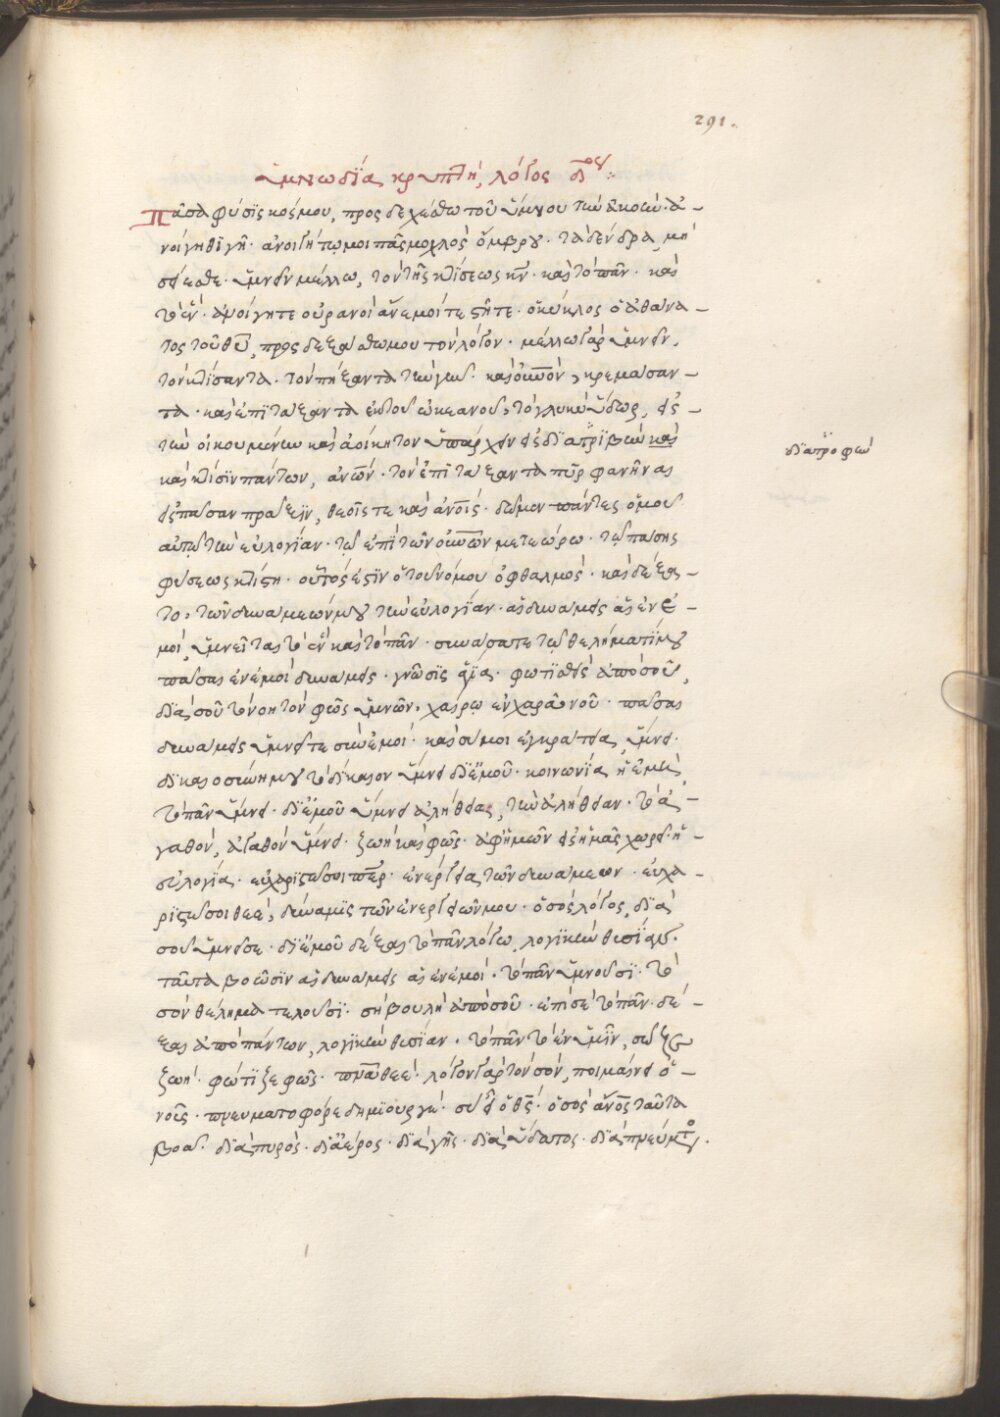 291.
ὑμνωδΐα κρυπτὴ, λόγος δ̅ου:
Πᾶσα φύσϊς κόσμου, προσδεχέσθω τοῦ ὕμνου τὴν ἀκοὴν· ἀ-
νοίγηθϊ γῆ· ἀνοιγήτω μοι πᾶς μοχλὸς ὄμβρου· τὰ δένδρα μὴ
σείεσθε· ὑμνεῖν μέλλω, τὸν τῆς κτίσεως κ̅ν· καὶ τὸ πᾶν· καὶ
τὸ ἕν· ἀνοίγητε οὐρανοὶ ἄνεμοί τε στῆτε· ὁ κύκλος ὁ ἀθάνα-
τος τοῦ θ̅υ, προσδεξάσθω μου τὸν λόγον· μέλλω γὰρ ὑμνεῖν,
τὸν κτίσαντα· τὸν πήξαντα τὴν γῆν· καὶ ὀυ̅νὸν, κρεμάσαν-
τα· καὶ ἐπϊτάξαντα ἐκ τοῦ ὠκεανοῦ, τὸ γλυκὺ ὕδωρ, εἰς
τὴν οἰκουμένην καὶ ἀοίκητον ὑπάρχειν εἰς δϊατρϊβὴν καὶ
δϊατροφὴν
καὶ κτίσϊν πάντων, αν̅ων· τὸν ἐπϊτάξαντα πῦρ φανῆναι
εἰς πᾶσαν πράξϊν, θεοῖς τε καὶ αν̅οις· δῶμεν πάντες ὁμοῦ
αὐτῷ τὴν εὐλογΐαν· τῷ ἐπὶ τῶν ου̅νῶν μετεώρω· τῷ πάσης
φύσεως κτίστη· οὗτός ἐστϊν ὁ τοῦ νόμου ὀφθαλμὸς· καὶ δέξαι-
το, τῶν δυνάμεών μου τὴν εὐλογΐαν· αἱ δυνάμεις αἱ ἐν ἐ-
μοὶ, ὑμνεῖτε τὸ ἓν καὶ τὸ πᾶν· συνάσατε τῷ θελήματί μου
πᾶσαι ἐν ἐμοὶ δυνάμεις· γνῶσϊς ἁγΐα· φωτισθεὶς ἀπὸ σοῦ,
δϊὰ σοῦ τὸ νοητὸν φῶς ὑμνῶν· χαίρω ἐν χαρᾶ νοῦ· πᾶσαι
δυνάμεις ὑμνεῖτε σὺν ἐμοὶ· καὶ σύ μοι ἐγκράτεια, ὕμνει·
δϊκαιοσύνη μου τὸ δίκαιον ὕμνει δϊ' ἐμοῦ· κοινωνία ἡ ἐμὴ,
τὸ πᾶν ὕμνει· δϊ' ἐμοῦ ὕμνει ἀλήθεια, τὴν ἀλήθειαν· τὸ ἀ-
γαθὸν, ἀγαθὸν ὕμνει· ζωὴ καὶ φῶς· ἀφ' ἡμῶν εἰς ἡμᾶς χωρεῖ ἡ
εὐλογία· εὐχαριστῶ σοι π̅ερ· ἐνέργεια τῶν δυνάμεων· εὐχα-
ρϊστῶ σοι θεέ, δύναμϊς τῶν ἐνεργειῶν μου· ὁ σὸς λόγος, δϊὰ
σοῦ ὑμνεῖ σε· δϊ' ἐμοῦ δέξαι τὸ πᾶν λόγω, λογϊκὴν θυσίαν·
ταῦτα βοῶσϊν αἱ δυνάμεις αἱ ἐν ἐμοὶ· τὸ πᾶν ὑμνοῦσϊ· τὸ
σὸν θέλημα τελοῦσϊ· σὴ βουλὴ ἀπὸ σοῦ· ἐπὶ σὲ τὸ πᾶν· δέ-
ξαι ἀπὸ πάντων, λογϊκὴν θυσίαν· τὸ πᾶν τὸ ἐν ὑμῖν, σῶζε
ζωὴ· φώτιζε φῶς· πν̅α θεέ· λόγον γὰρ τὸν σὸν, ποιμαίνει ὁ-
νοῦς· πνευματοφόρε δημϊουργὲ· σὺ εἶ ὁ θ̅ς· ὁ σὸς ἄν̅ος ταῦτα
βοᾶ· δϊὰ πυρὸς· δϊ' ἀέρος· δϊὰ γῆς· δϊὰ ὕδατος· δϊὰ πνεύματος.